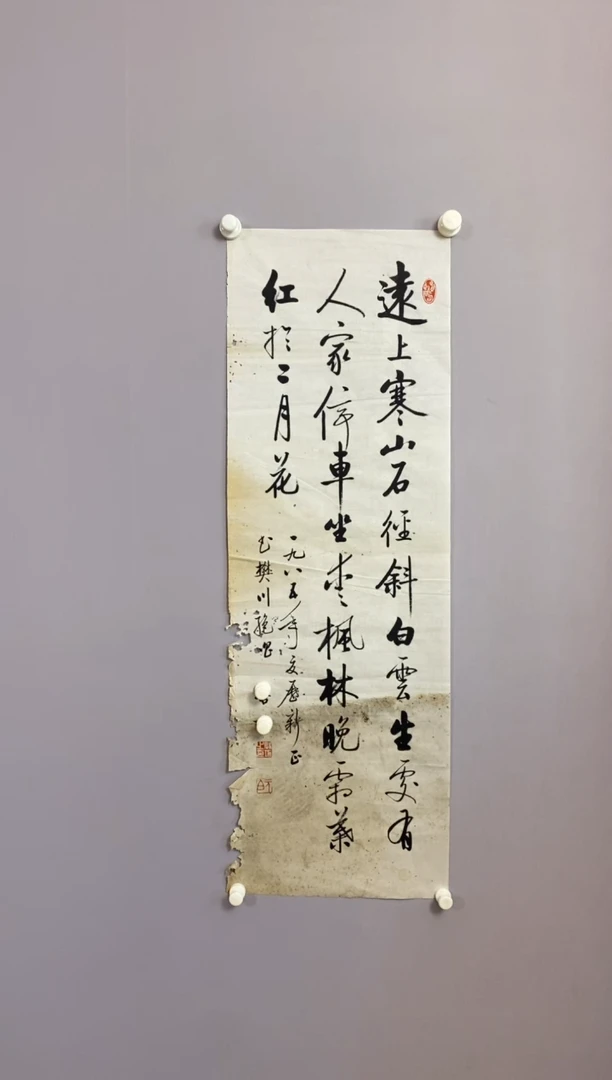 遠上寒山石徑斜白雲生處有
人家停車坐愛楓林晚霜葉
紅於二月花
一九八五年夏歷新正
書樊川絕句